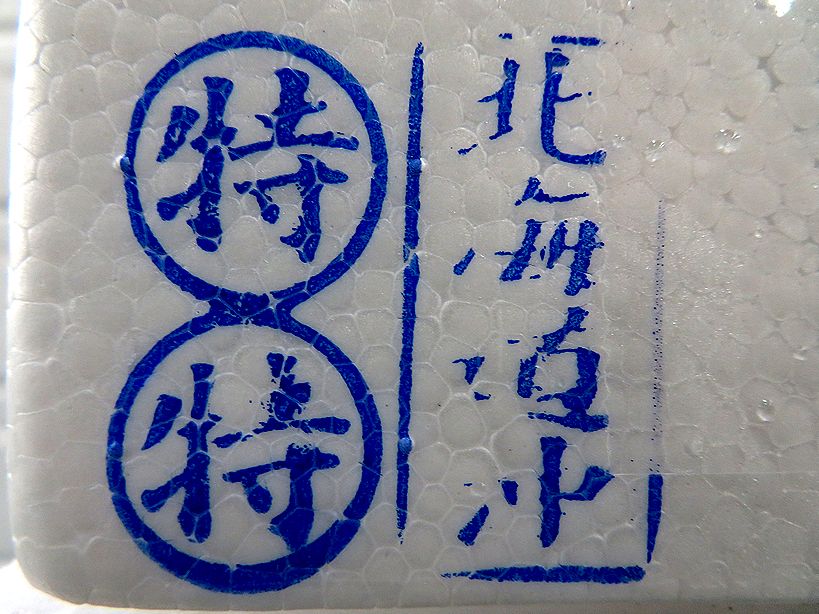 北海道沖
特特